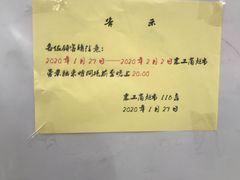 告 示
各位顾客请注意:
2020年1月27日——2020年2月2日农工商超市
营业结束时间现前至晚上20:00
农工商超市 110店
2020年1月27日